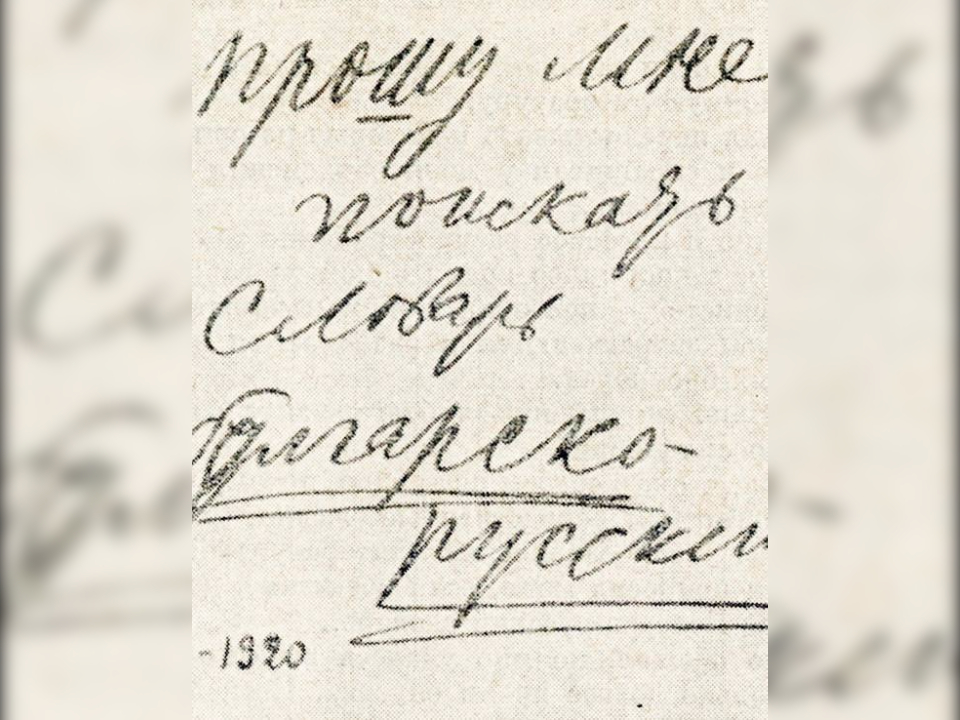 прошу мне
поискать
Словарь
болгарско-
русский
-1920